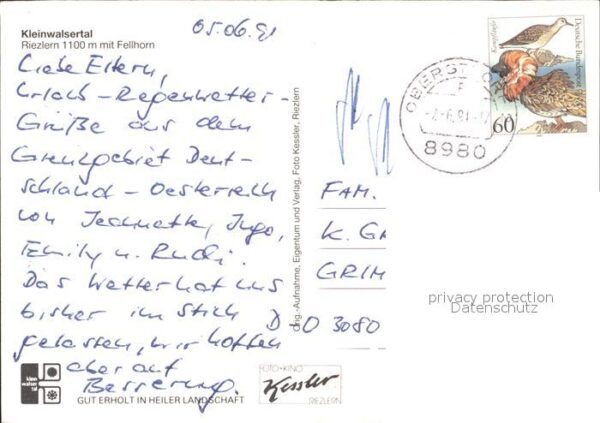 Kleinwalsertal
Riezlern 1100 m mit Fellhorn
05.06.91
Liebe Eltern,
Urlaub-Regenwetter-
Grüße aus dem
Grenzgebiet Deut-
schland-Oesterreich
von Jeannette, Ingo,
Emily u. Rudi.
Das Wetter hat uns
bisher im Stich
gelassen, wir hoffen
aber auf
Besserung.
klein
walser
tal
GUT ERHOLT IN HEILER LANDSCHAFT
Orig.-Aufnahme, Eigentum und Verlag, Foto Kessler, Riezlern
FOTO+KINO
Kessler
RIEZLERN
Kampfläufer
Deutsche Bundespost
60
OBERST
8980
FAM.
K. GA
GRIM
D-O 3080
privacy protection
Datenschutz